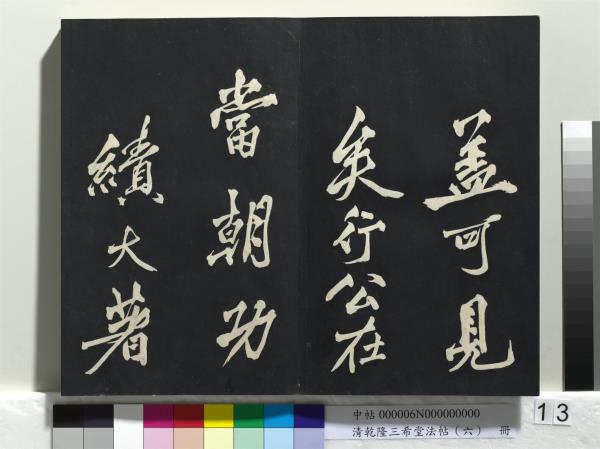 蓋可見
矣行公在
當朝功
績大著
中帖 000006N000000000
清乾隆三希堂法帖（六） 冊
13